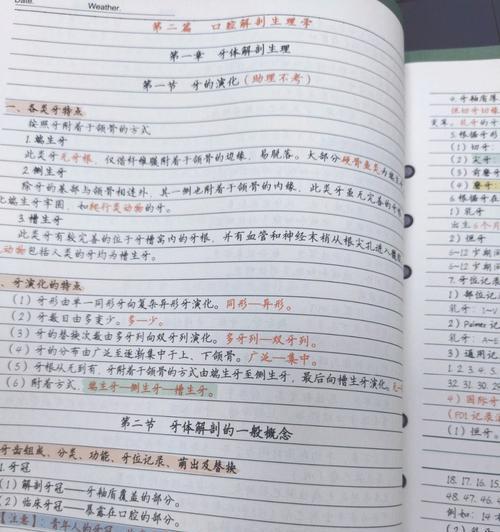 Date.
Weather.
第二篇 口腔解剖生理学
第一章 牙体解剖生理
第一节 牙的演化（助理不考）
一、各类牙特点
按照牙附着于颌骨的方式
1.端生牙
此类牙无牙根，仅借纤维膜附着于颌骨的边缘，易脱落。大部分硬骨鱼类
2.侧生牙
除牙的基部与颌骨相连外，其一侧也附着于颌骨的内缘，此类牙虽无完善的
比端生牙牢固，如爬行类动物的牙。
3.槽生牙
此类牙有较完善的位于牙槽窝内的牙根，并有血管和神经末梢从根尖孔进入髓
动物包括人类的牙均为槽生牙。
、牙演化的特点
（1）牙形由单一同形牙向复杂异形牙演化。同形—异形。
（2）牙数目由多变少。多—少。
（3）牙的替换次数由多牙列向双牙列演化。多牙列—双牙列。
（4）牙的分布由广泛至逐渐集中于上、下颌骨。广泛—集中。
（5）牙根从无到有，牙附着于颌骨的方式由端生牙至侧生牙，最后向槽生牙演化。无—
（6）附着方式，端生牙—侧生牙—槽生牙。
第二节 牙体解剖的一般概念
牙齿组成、分类、功能、牙位记录、萌出及替换
1.牙冠
（1）解剖牙冠——牙釉质覆盖的部分。
（2）临床牙冠——暴露在口腔的部分。
【注意】：青年人的牙冠
4.牙釉质薄
但切牙切缘
3.根据牙
（1）切牙：
（2）尖牙
（3）前磨牙
（4）磨牙：
6.根据牙在
1）乳牙
出生6个月
2）恒牙
6—12岁期间
7.牙位记录
1）部位记
乳牙：
2）Palmer
乳牙：A—E
3）通用
1. 2. 3. 4. 5.
32. 31. 30.
4）国际牙
（FDI记录
（1）恒牙：
18. 17. 16. 15.
48. 47. 46.
例如：14